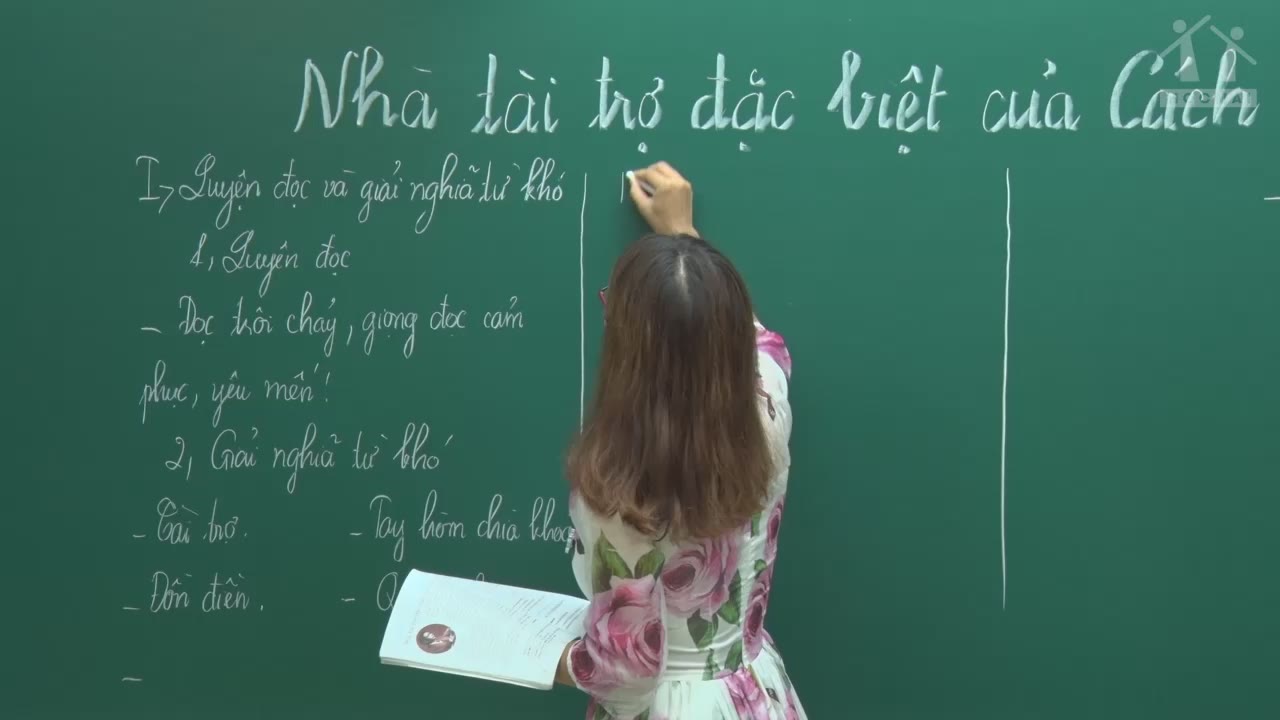 Nhà tài trợ đặc biệt của Cách
I, Luyện đọc và giải nghĩa từ khó
1, Luyện đọc
- Đọc trôi chảy, giọng đọc cảm
phục, yêu mến!
2, Giải nghĩa từ khó
- Tài trợ. - Tay hòm chìa khoá
- Đồn điền. - Q
-